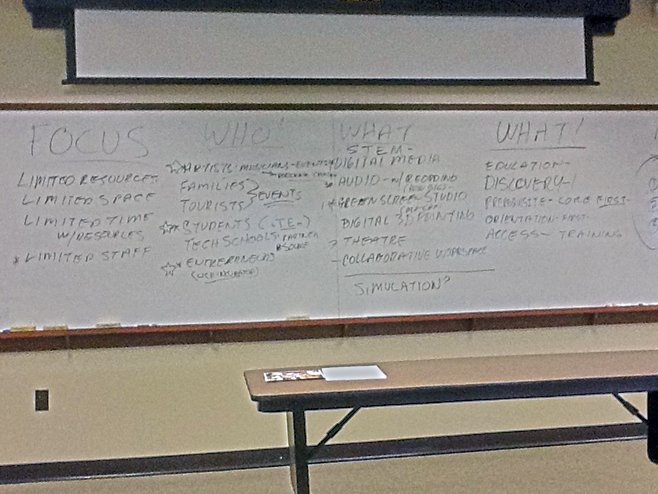 FOCUS
LIMITED RESOURCES
LIMITED SPACE
LIMITED TIME
W/RESOURCES
LIMITED STAFF
WHO
ARTISTS MUSICIANS
FAMILIES
TOURISTS
EVENTS
STUDENTS
TECH SCHOOLS
PARTNER
ENTREPRENEURS
WHAT
STEM-
DIGITAL MEDIA
AUDIO - RECORDING
GREEN SCREEN STUDIO
DIGITAL 3D PRINTING
THEATRE
- COLLABORATIVE WORKSPACE
SIMULATION?
WHAT!
EDUCATION-
DISCOVERY-
CORE FIRST-
ORIENTATION-FIRST-
ACCESS- TRAINING